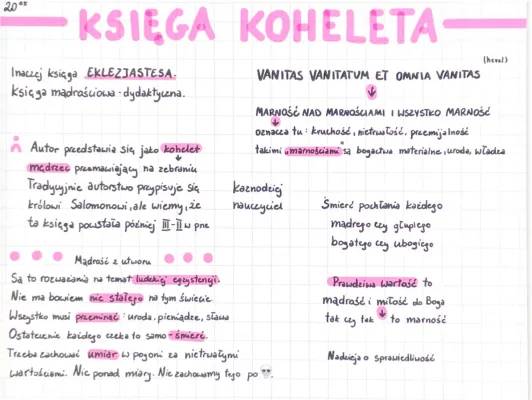 20⁰⁵
KSIĘGA KOHELETA
Inaczej księga EKLEZJASTESA.
Księga mądrościowa-dydaktyczna.
(hevel)
VANITAS VANITATUM ET OMNIA VANITAS
MARNOŚĆ NAD MARNOŚCIAMI I WSZYSTKO MARNOŚĆ
oznacza tu: kruchość, nietrwałość, przemijalność
takimi "marnościami" są bogactwa materialne, uroda, władza
Autor przedstawia się jako kohelet
mędrzec przemawiający na zebraniu
Tradycyjnie autorstwo przypisuje się
królowi Salomonowi, ale wiemy, że
ta księga powstała później III-II w pne
kaznodziej
nauczyciel
Śmierć pochłania każdego
mądrego czy głupiego
bogatego czy ubogiego
Mądrość z utworu
Są to rozważania na temat ludzkiej egzystencji.
Nie ma bowiem nic stałego na tym świecie
Wszystko musi przeminąć: uroda, pieniądze, sława
Ostatecznie każdego czeka to samo - śmierć.
Trzeba zachować umiar w pogoni za nietrwałymi
wartościami. Nic ponad miarę. Nic zachowamy tego po
Prawdziwa wartość to
mądrość i miłość do Boga
tak czy tak to marność
Nadzieja o sprawiedliwość